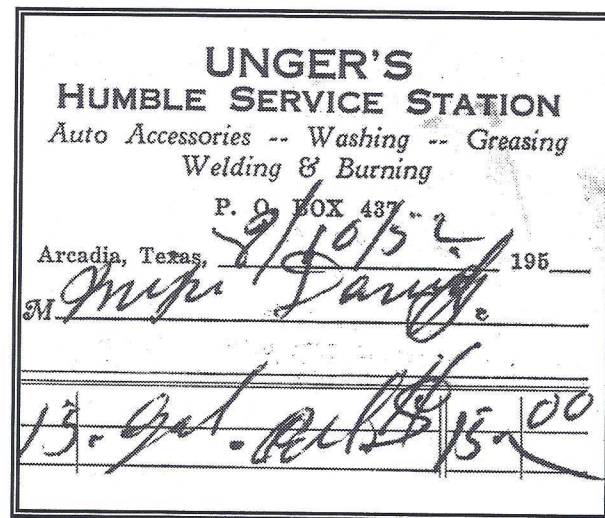 UNGER'S
HUMBLE SERVICE STATION
Auto Accessories -- Washing -- Greasing
Welding & Burning
P. O. BOX 437
Arcadia, Texas, 9/10/52. 195
M
15. gal. 15. 00